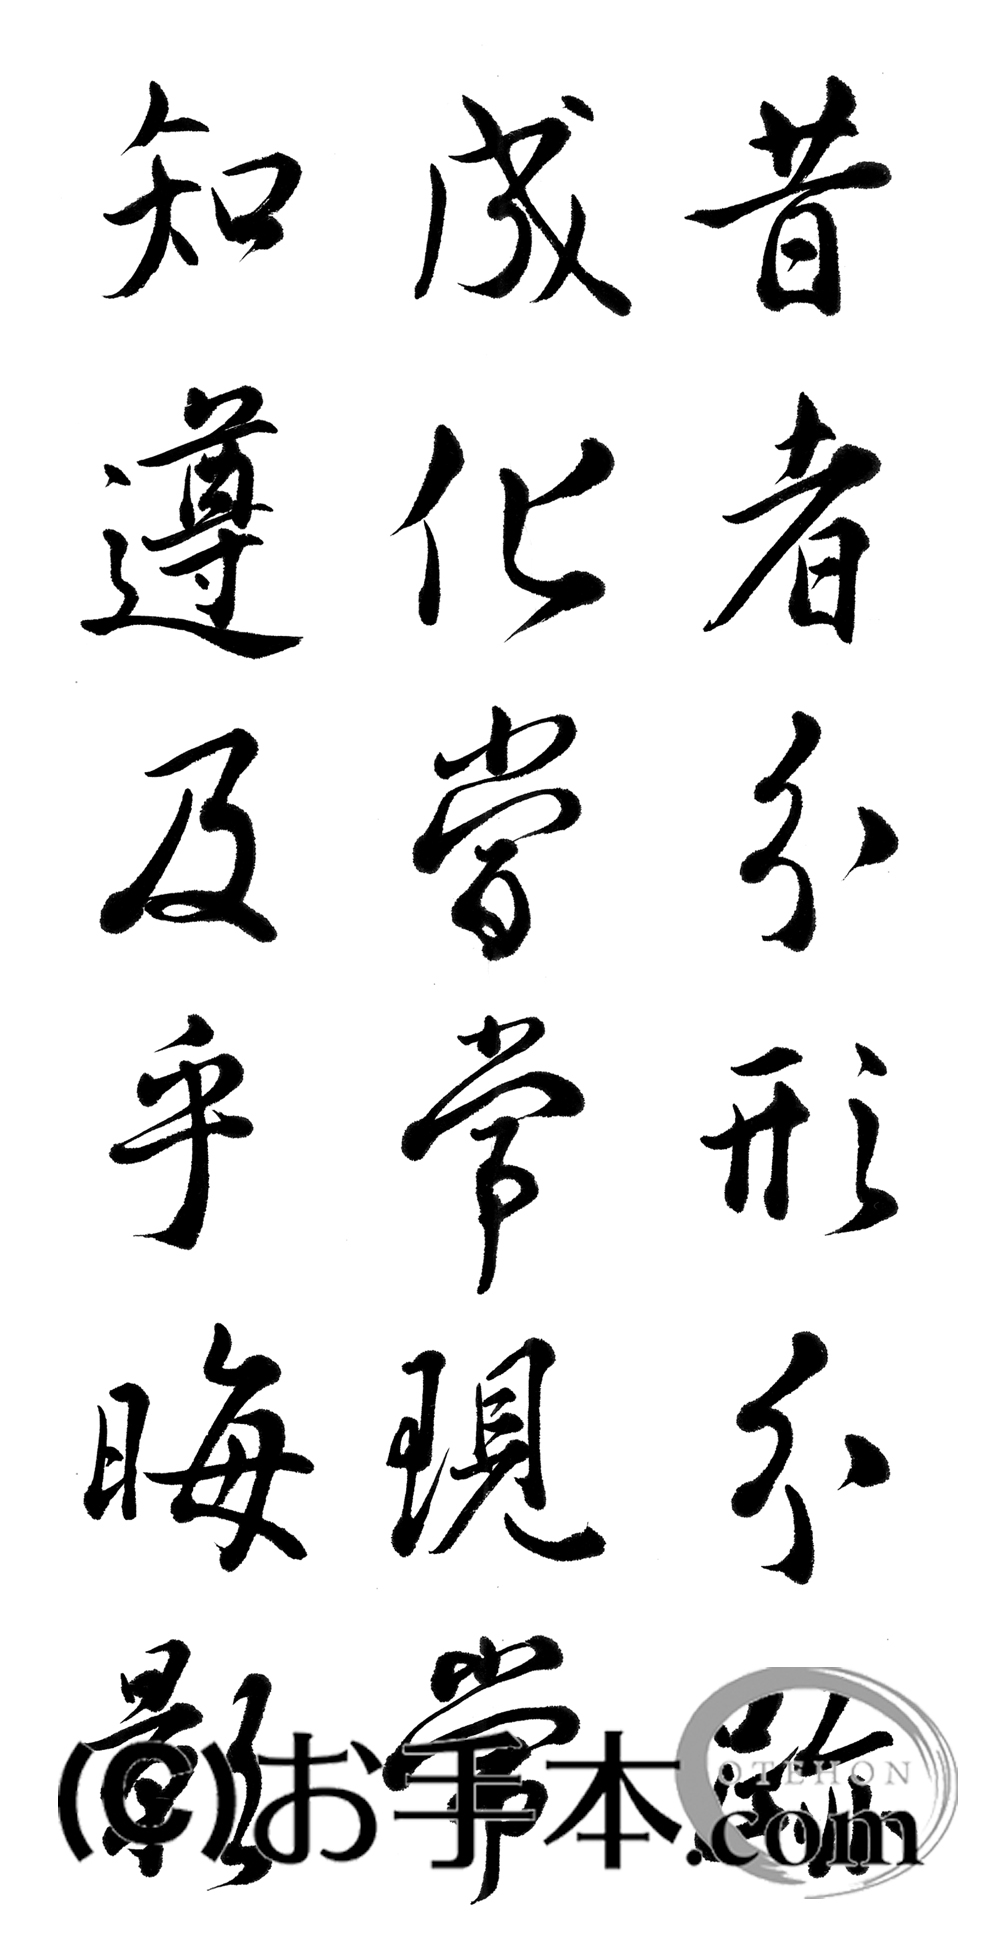 昔者分形分跡
成化當常現常
知遵及乎晦影
(C)お手本.com
OTEHON